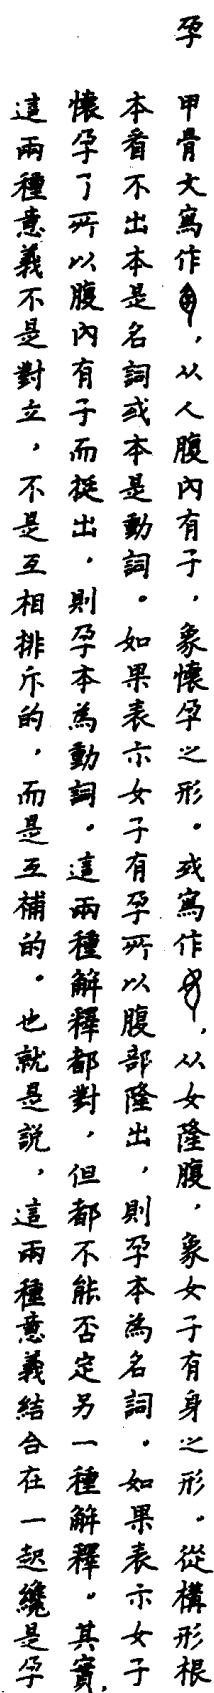 孕
甲骨文寫作，从人腹內有子，象懷孕之形。或寫作，从女隆腹，象女子有身之形。從構形根
本看不出本是名詞或本是動詞。如果表示女子有孕所以腹部隆出，則孕本為名詞。如果表示女子
懷孕了所以腹內有子而挺出，則孕本為動詞。這兩種解釋都對，但都不能否定另一種解釋。其實，
這兩種意義不是對立，不是互相排斥的，而是互補的。也就是說，這兩種意義結合在一起纔是孕